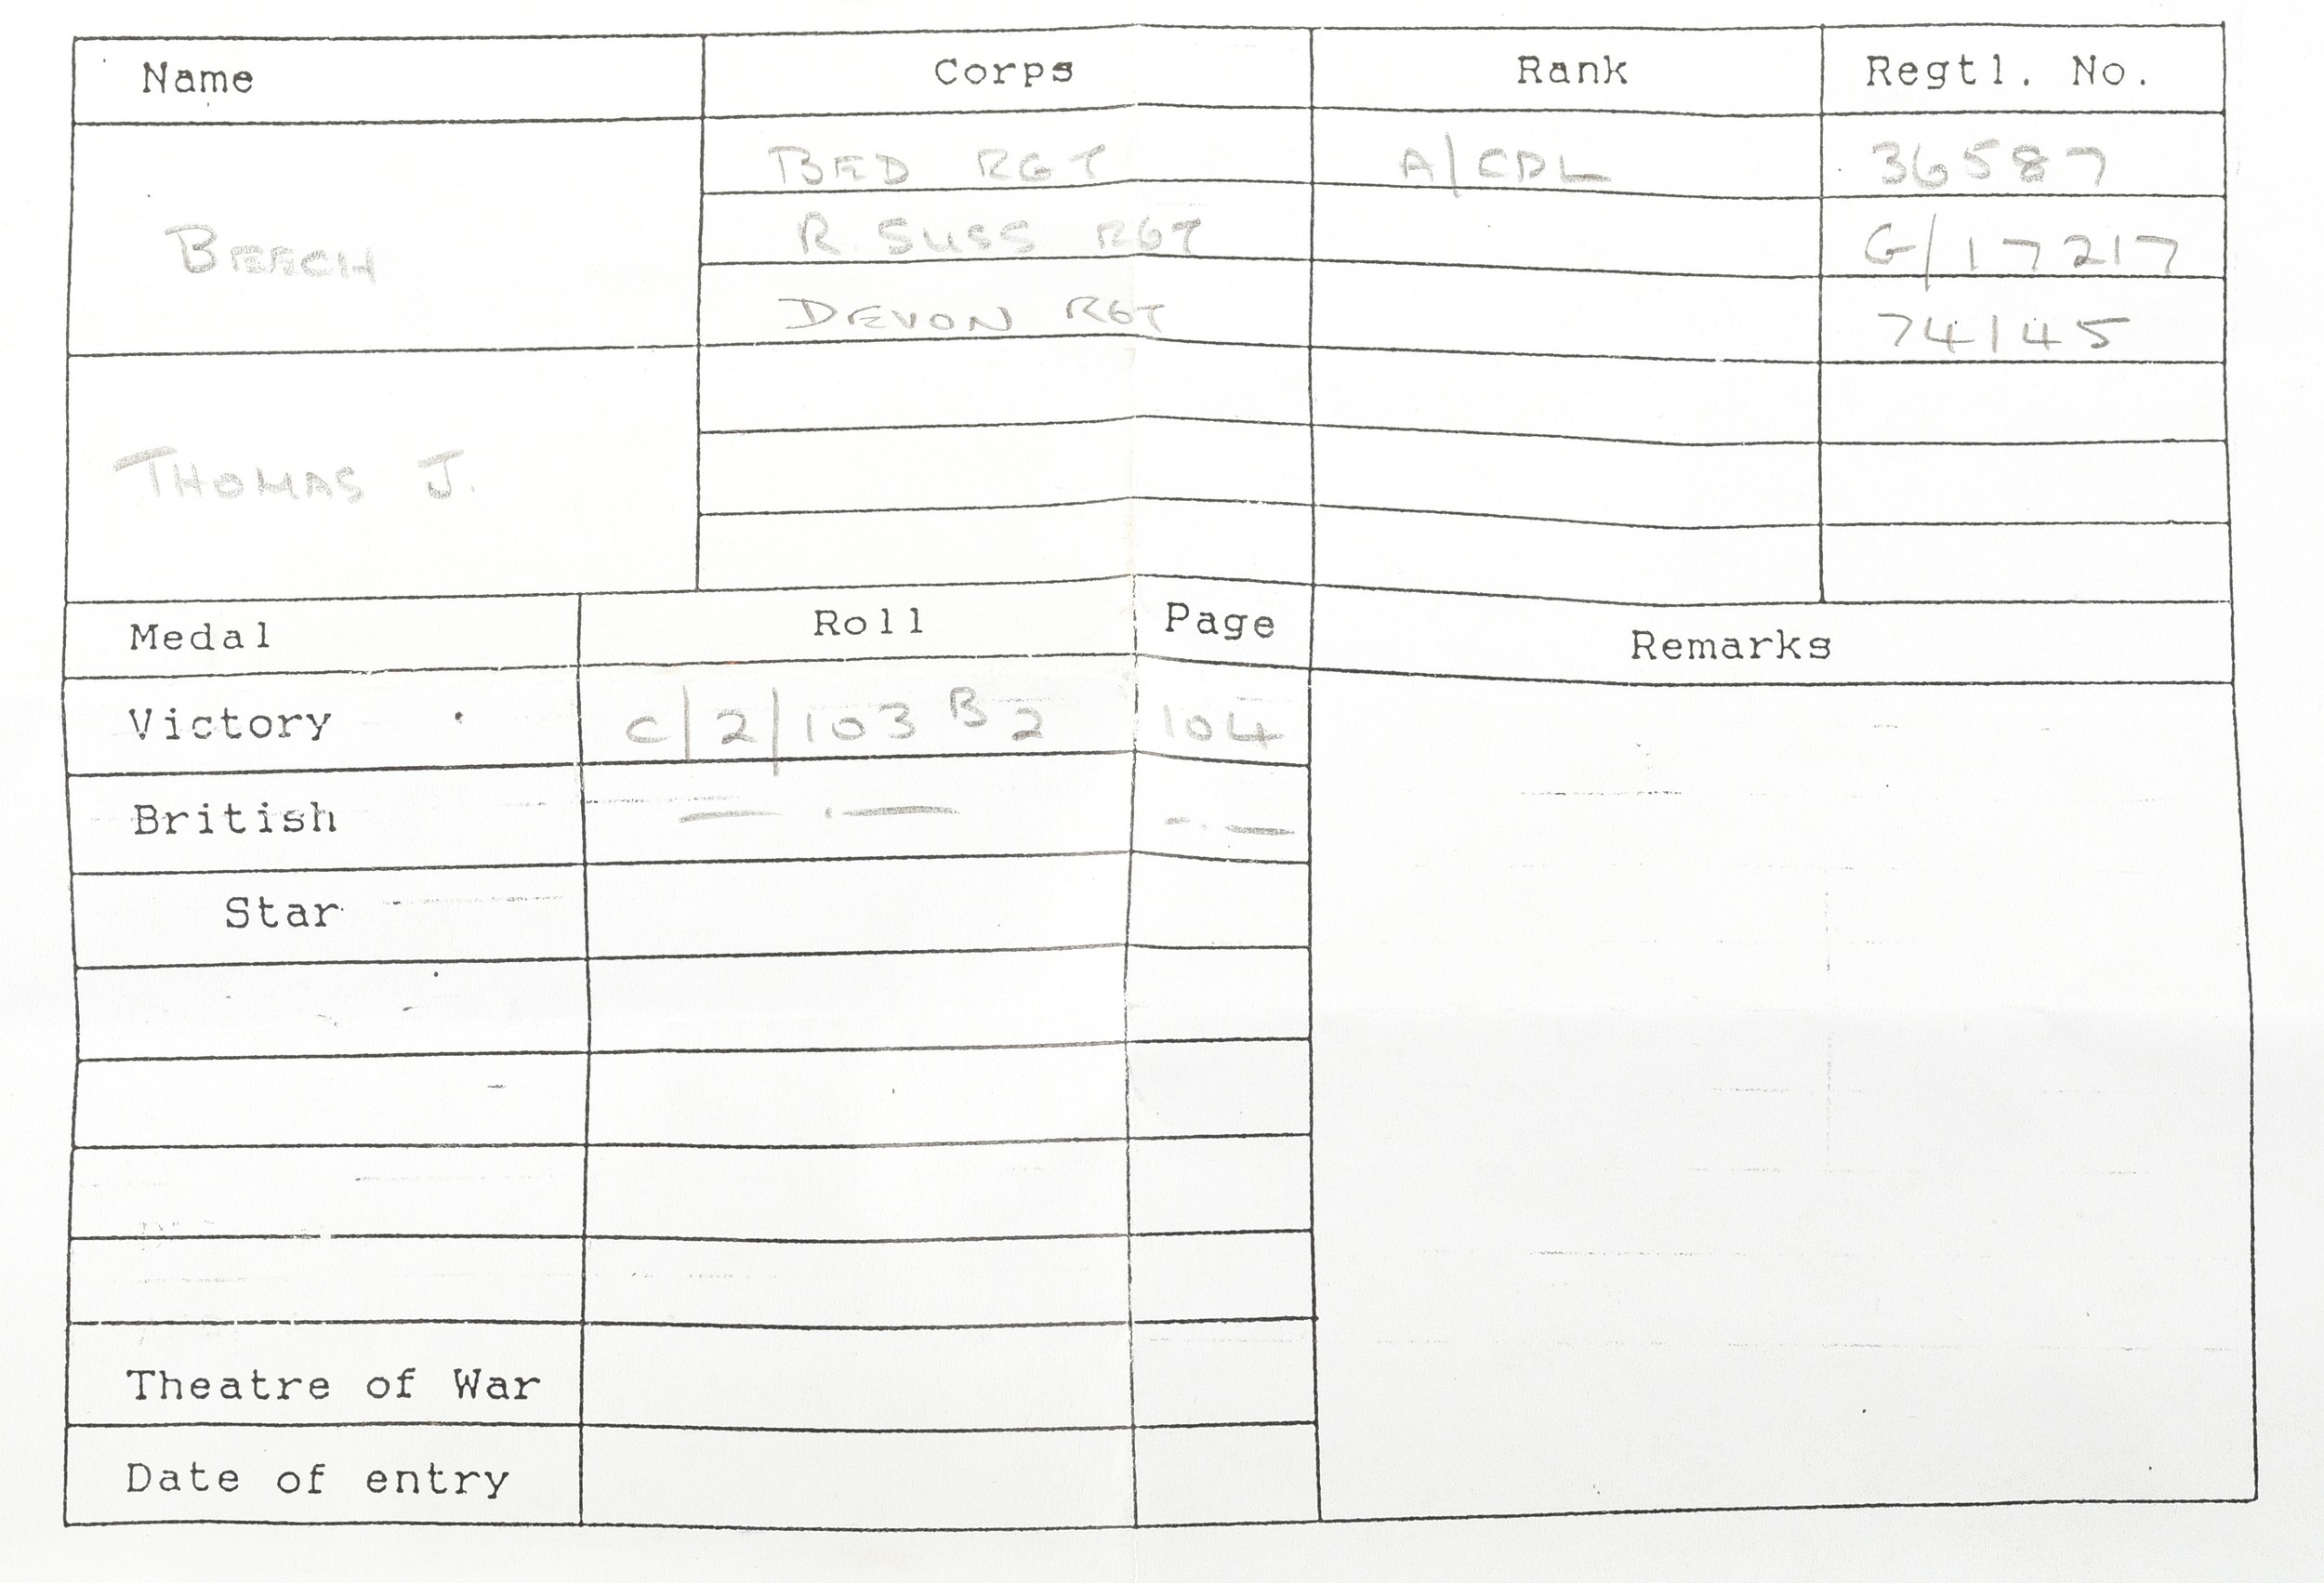 Name Corps Rank Regtl. No.
BEECH BED RGT A/CPL 36587
R SUSS RGT G/17217
DEVON RGT 74145
THOMAS J.
Medal Roll Page Remarks
Victory C/2/103 B2 104
British — . — - . —
Star
Theatre of War
Date of entry